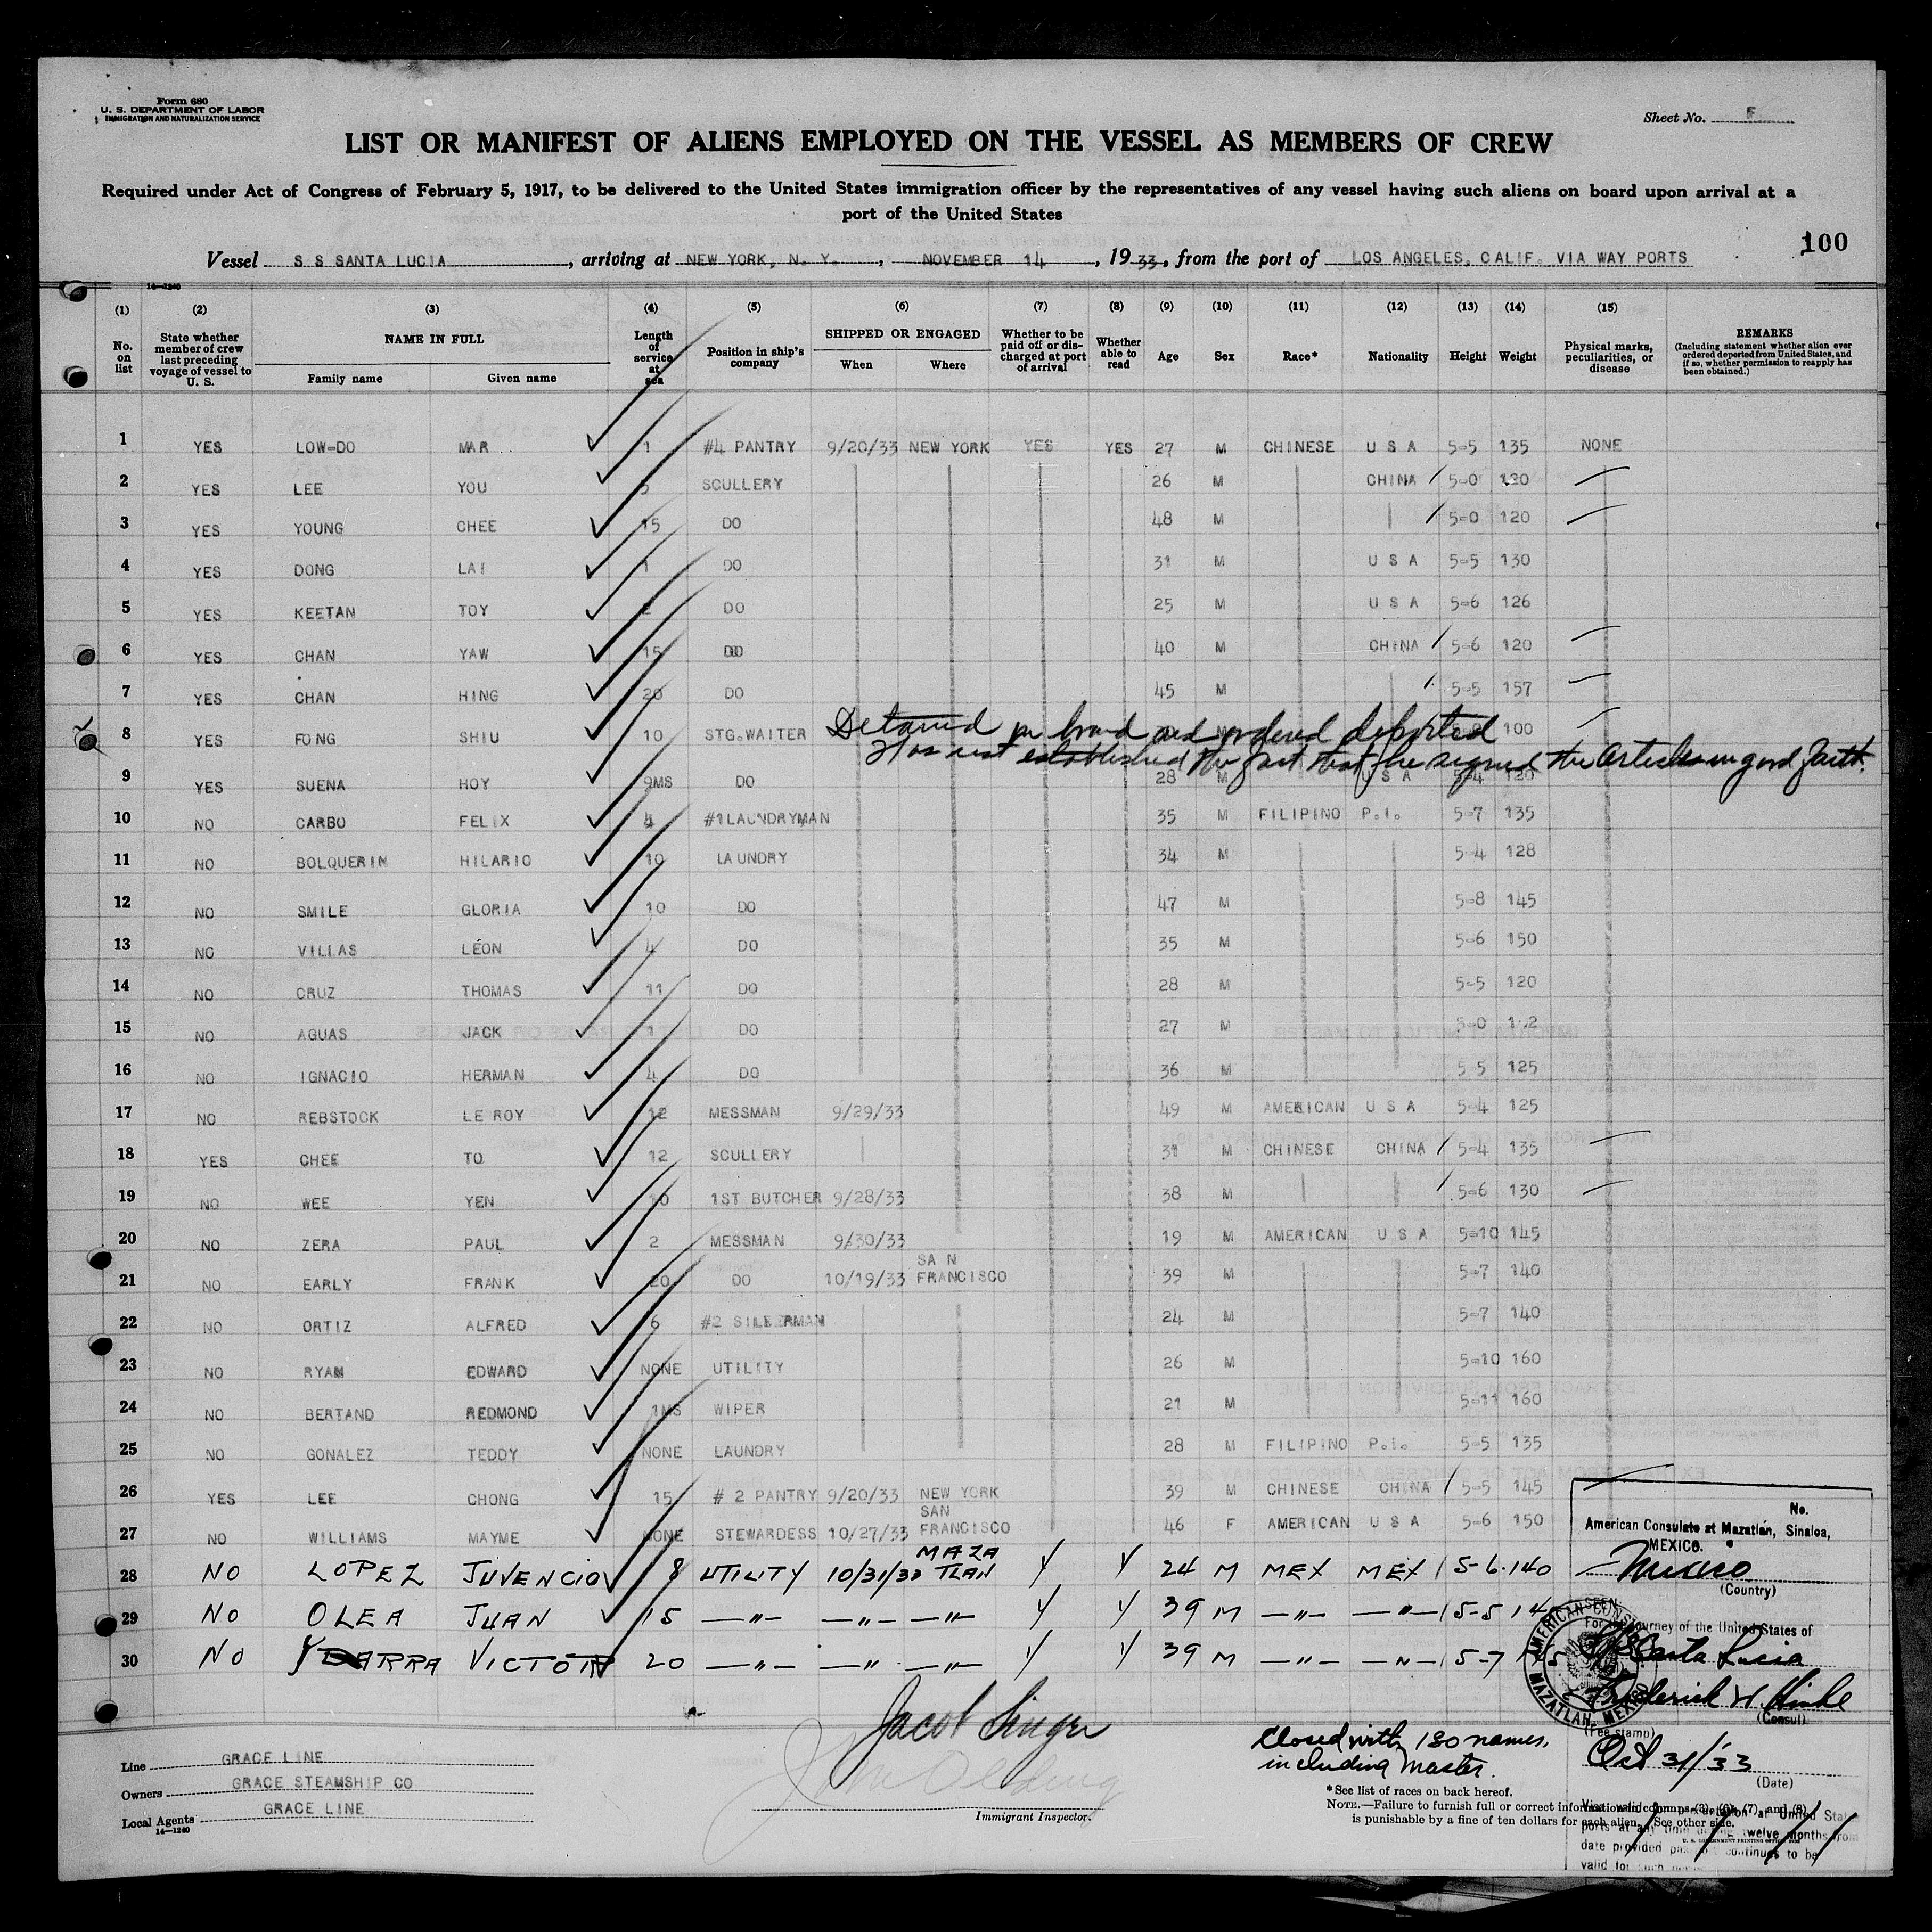 Form 680
U. S. DEPARTMENT OF LABOR
IMMIGRATION AND NATURALIZATION SERVICE
Sheet No. F
LIST OR MANIFEST OF ALIENS EMPLOYED ON THE VESSEL AS MEMBERS OF CREW
Required under Act of Congress of February 5, 1917, to be delivered to the United States immigration officer by the representatives of any vessel having such aliens on board upon arrival at a
port of the United States
100
Vessel S S SANTA LUCIA, arriving at NEW YORK, N. Y., NOVEMBER 14, 1933, from the port of LOS ANGELES, CALIF. VIA WAY PORTS
14—1240
(1) (2) (3) (4) (5) (6) (7) (8) (9) (10) (11) (12) (13) (14) (15)
No. on list
State whether member of crew last preceding voyage of vessel to U. S.
NAME IN FULL
Family name
Given name
Length of service at sea
Position in ship's company
SHIPPED OR ENGAGED
When
Where
Whether to be paid off or discharged at port of arrival
Whether able to read
Age
Sex
Race*
Nationality
Height
Weight
Physical marks, peculiarities, or disease
REMARKS
(Including statement whether alien ever ordered deported from United States, and if so, whether permission to reapply has been obtained.)
1 YES LOW-DO MAR 1 #4 PANTRY 9/20/33 NEW YORK YES YES 27 M CHINESE U S A 5-5 135 NONE
2 YES LEE YOU 5 SCULLERY 26 M CHINA 5-0 130
3 YES YOUNG CHEE 15 DO 48 M 5-0 120
4 YES DONG LAI 1 DO 31 M U S A 5-5 130
5 YES KEETAN TOY 2 DO 25 M U S A 5-6 126
6 YES CHAN YAW 15 DO 40 M CHINA 5-6 120
7 YES CHAN HING 20 DO 45 M 5-5 157
8 YES FONG SHIU 10 STG.WAITER 100
Detained on board and ordered deported
Has not established the fact that he signed the articles in good faith.
9 YES SUENA HOY 9MS DO 28 M U S A 5-4 120
10 NO CARBO FELIX 4 #1LAUNDRYMAN 35 M FILIPINO P.I. 5-7 135
11 NO BOLQUERIN HILARIO 10 LAUNDRY 34 M 5-4 128
12 NO SMILE GLORIA 10 DO 47 M 5-8 145
13 NO VILLAS LEON 4 DO 35 M 5-6 150
14 NO CRUZ THOMAS 11 DO 28 M 5-5 120
15 NO AGUAS JACK 1 DO 27 M 5-0
16 NO IGNACIO HERMAN 4 DO 36 M 5-5 125
17 NO REBSTOCK LE ROY 12 MESSMAN 9/29/33 49 M AMERICAN U S A 5-4 125
18 YES CHEE TO 12 SCULLERY 31 M CHINESE CHINA 5-4 135
19 NO WEE YEN 10 1ST BUTCHER 9/28/33 38 M 5-6 130
20 NO ZERA PAUL 2 MESSMAN 9/30/33 19 M AMERICAN U S A 5-10 145
21 NO EARLY FRANK 20 DO 10/19/33 SAN FRANCISCO 39 M 5-7 140
22 NO ORTIZ ALFRED 6 #2 SILBERMAN 24 M 5-7 140
23 NO RYAN EDWARD NONE UTILITY 26 M 5-10 160
24 NO BERTAND REDMOND 1MS WIPER 21 M 5-11 160
25 NO GONALEZ TEDDY NONE LAUNDRY 28 M FILIPINO P.I. 5-5 135
26 YES LEE CHONG 15 # 2 PANTRY 9/20/33 NEW YORK 39 M CHINESE CHINA 5-5 145
27 NO WILLIAMS MAYME NONE STEWARDESS 10/27/33 SAN FRANCISCO 46 F AMERICAN U S A 5-6 150
28 NO LOPEZ JUVENCIO 8 UTILITY 10/31/33 MAZATLAN Y Y 24 M MEX MEX 5-6 140
29 NO OLEA JUAN 15 —"— —"— —"— Y Y 39 M —"— —"— 5-5
30 NO YBARRA VICTOR 20 —"— —"— —"— Y Y 39 M —"— —"— 5-7
No.
American Consulate at Mazatlán, Sinaloa,
MEXICO.
Mexico
(Country)
SEEN
For the journey of the United States of
SS Santa Lucia
Frederick H. Hinke
(Consul)
AMERICAN CONSULATE MAZATLAN, MEXICO
(Fee stamp)
Oct 31/33
(Date)
ports at any time during twelve months from
date provided passport continues to be
valid for such period
Jacob Singer
Immigrant Inspector.
Closed with 180 names,
including Master.
Line GRACE LINE
Owners GRACE STEAMSHIP CO
Local Agents GRACE LINE
14—1240
*See list of races on back hereof.
NOTE.—Failure to furnish full or correct information in columns (3), (6), (7), and (8)
is punishable by a fine of ten dollars for each alien. See other side.
U. S. GOVERNMENT PRINTING OFFICE